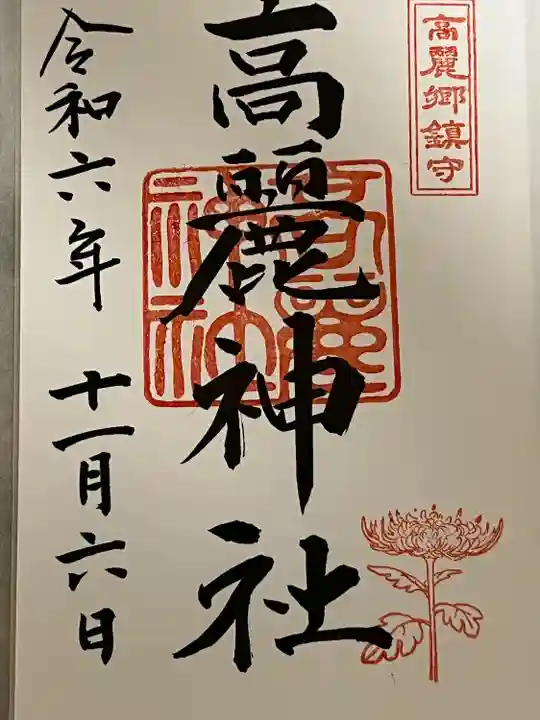 高麗郷鎮守
高麗神社
令和六年 十一月六日
高麗
神社